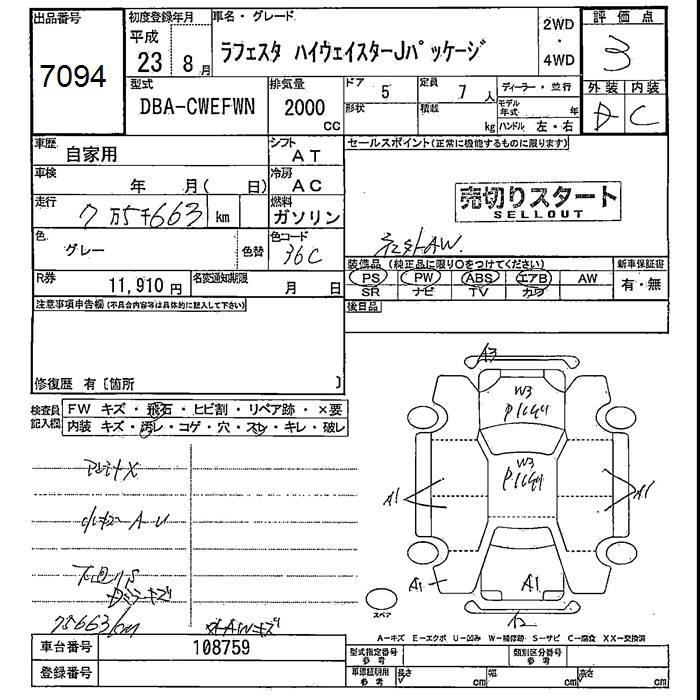 出品番号
7094
初度登録年月
平成
23 8 月
車名・グレード
ラフェスタ ハイウェイスターJパッケージ
2WD
・
4WD
評価点
3
型式
DBA-CWEFWN
排気量
2000
CC
ドア 5
形状
定員 7 人
積載
kg
ディーラー・並行
モデル年式 年
ハンドル 左・右
外装 内装
C
車歴
自家用
シフト
AT
車検
年 月( 日)
冷房
AC
走行
7万5千663 km
燃料
ガソリン
色
グレー
色替
色コード
36C
R券
11,910 円
名変通知期限
月 日
セールスポイント(正常に機能するものに限ります)
売切りスタート
SELLOUT
装備品 (純正品に限り○をつけてください)
PS PW ABS エアB AW
SR ナビ TV カワ
新車保証書
有・無
後日品
注意事項申告欄(不具合内容等は具体的に記入して下さい)
修復歴 有〔箇所 〕
検査員記入欄
FW キズ・飛石・ヒビ割・リペア跡・×要
内装 キズ・汚レ・コゲ・穴・スレ・キレ・破レ
75663km
A3
W3
W3
A1
A1
A1
A1
スペア
A-キズ E-エクボ U-凹み W-補修跡 S-サビ C-腐食 XX-交換済
車台番号
108759
登録番号
型式指定番号
参考
類別区分番号
参考
車庫証明用
参考
長さ cm
幅 cm
高さ cm